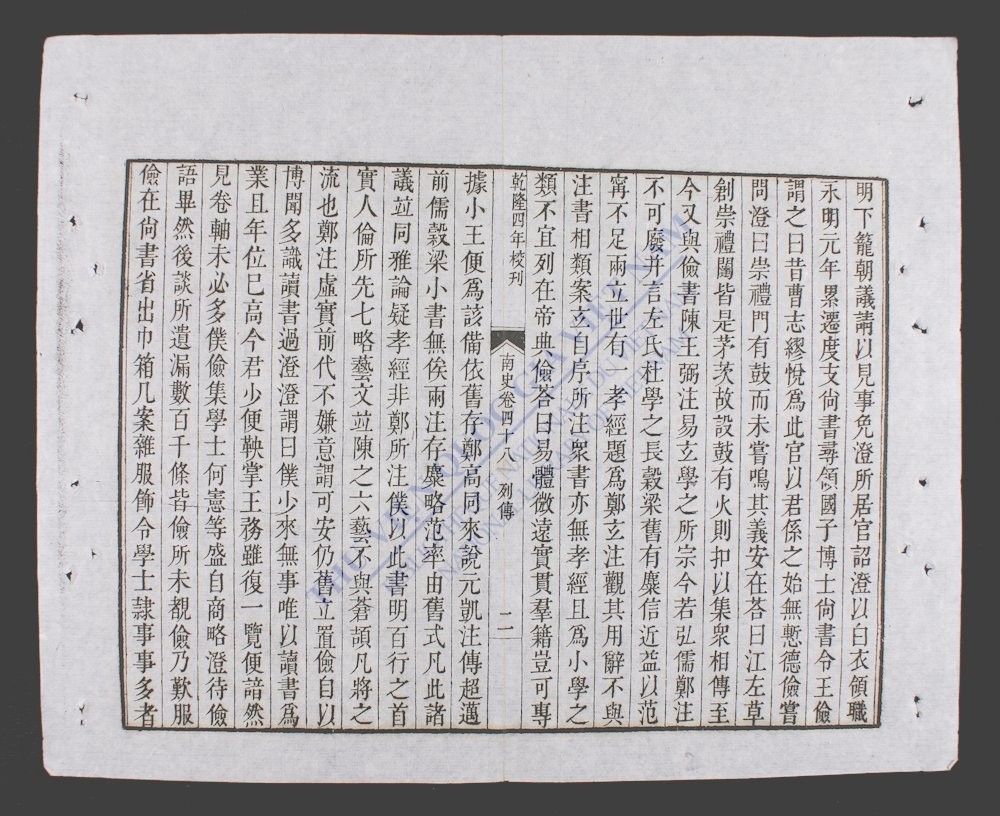 明下籠朝議請以見事免澄所居官詔澄以白衣領職
永明元年累遷度支尙書尋領國子博士尙書令王儉
謂之曰昔曹志繆悅爲此官以君係之始無慙德儉嘗
問澄曰崇禮門有鼓而未嘗鳴其義安在荅曰江左草
創崇禮闥皆是茅茨故設鼓有火則扣以集衆相傳至
今又與儉書陳王弼注易玄學之所宗今若弘儒鄭注
不可廢幷言左氏杜學之長穀梁舊有麋信近益以范
甯不足兩立世有一孝經題爲鄭玄注觀其用辭不與
注書相類案玄自序所注衆書亦無孝經且爲小學之
類不宜列在帝典儉荅曰易體微遠實貫羣籍豈可專
乾隆四年校刊
南史卷四十八 列傳
二
據小王便爲該備依舊存鄭高同來說元凱注傳超邁
前儒穀梁小書無俟兩注存麋略范率由舊式凡此諸
議竝同雅論疑孝經非鄭所注僕以此書明百行之首
實人倫所先七略藝文竝陳之六藝不與蒼頡凡將之
流也鄭注虛實前代不嫌意謂可安仍舊立置儉自以
博聞多識讀書過澄澄謂曰僕少來無事唯以讀書爲
業且年位巳高今君少便鞅掌王務雖復一覽便諳然
見卷軸未必多僕儉集學士何憲等盛自商略澄待儉
語畢然後談所遺漏數百千條皆儉所未覩儉乃歎服
儉在尙書省出巾箱几案雜服飾令學士隷事事多者